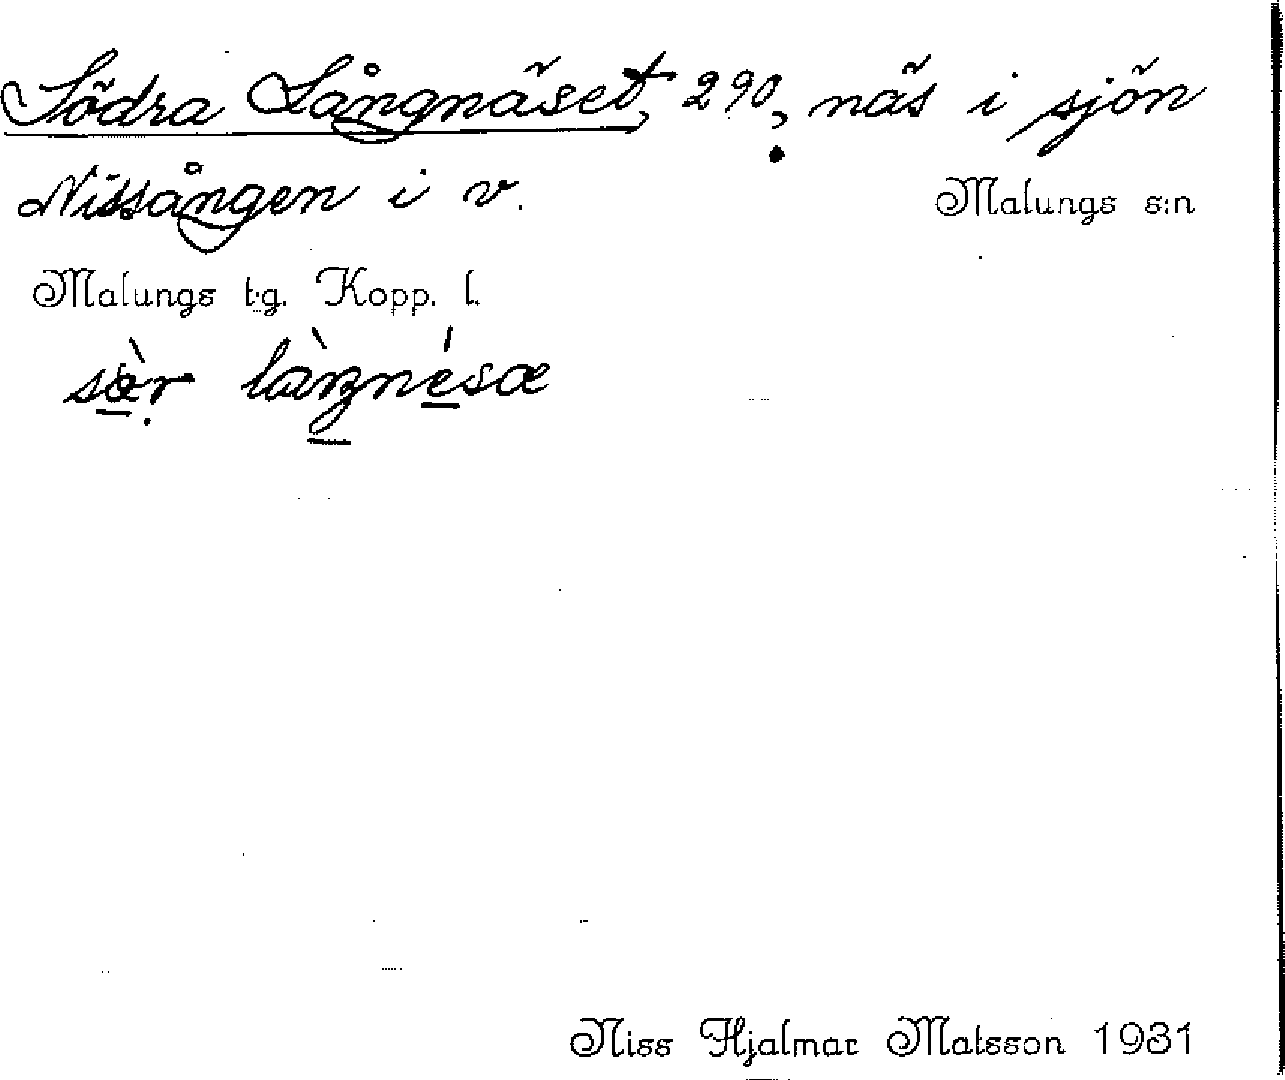 Södra Långnäset, 290, näs i sjön
Nissången i v. Malungs s:n
Malungs tg. Kopp. l.
Niss Hjalmar Matsson 1931